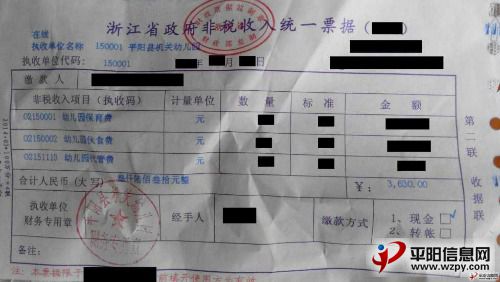 浙江省政府非税收入统一票据(
在线
执收单位名称 150001 平阳县机关幼儿园
执收单位代码: 150001 年 月 日
缴款人
非税收入项目(执收码) 计量单位 数量 标准 金额
02150001 幼儿园保育费 元
02150002 幼儿园伙食费 元
02151110 幼儿园代管费 元
合计人民币(大写) 叁仟陆佰叁拾元整 ¥: 3,630.00
执收单位
财务专用章
经手人
缴款方式
1、现金
2、转帐
备注:
第二联
收据联
注: 本票据限于
前填开使用
平阳信息网
www.wzpy.com